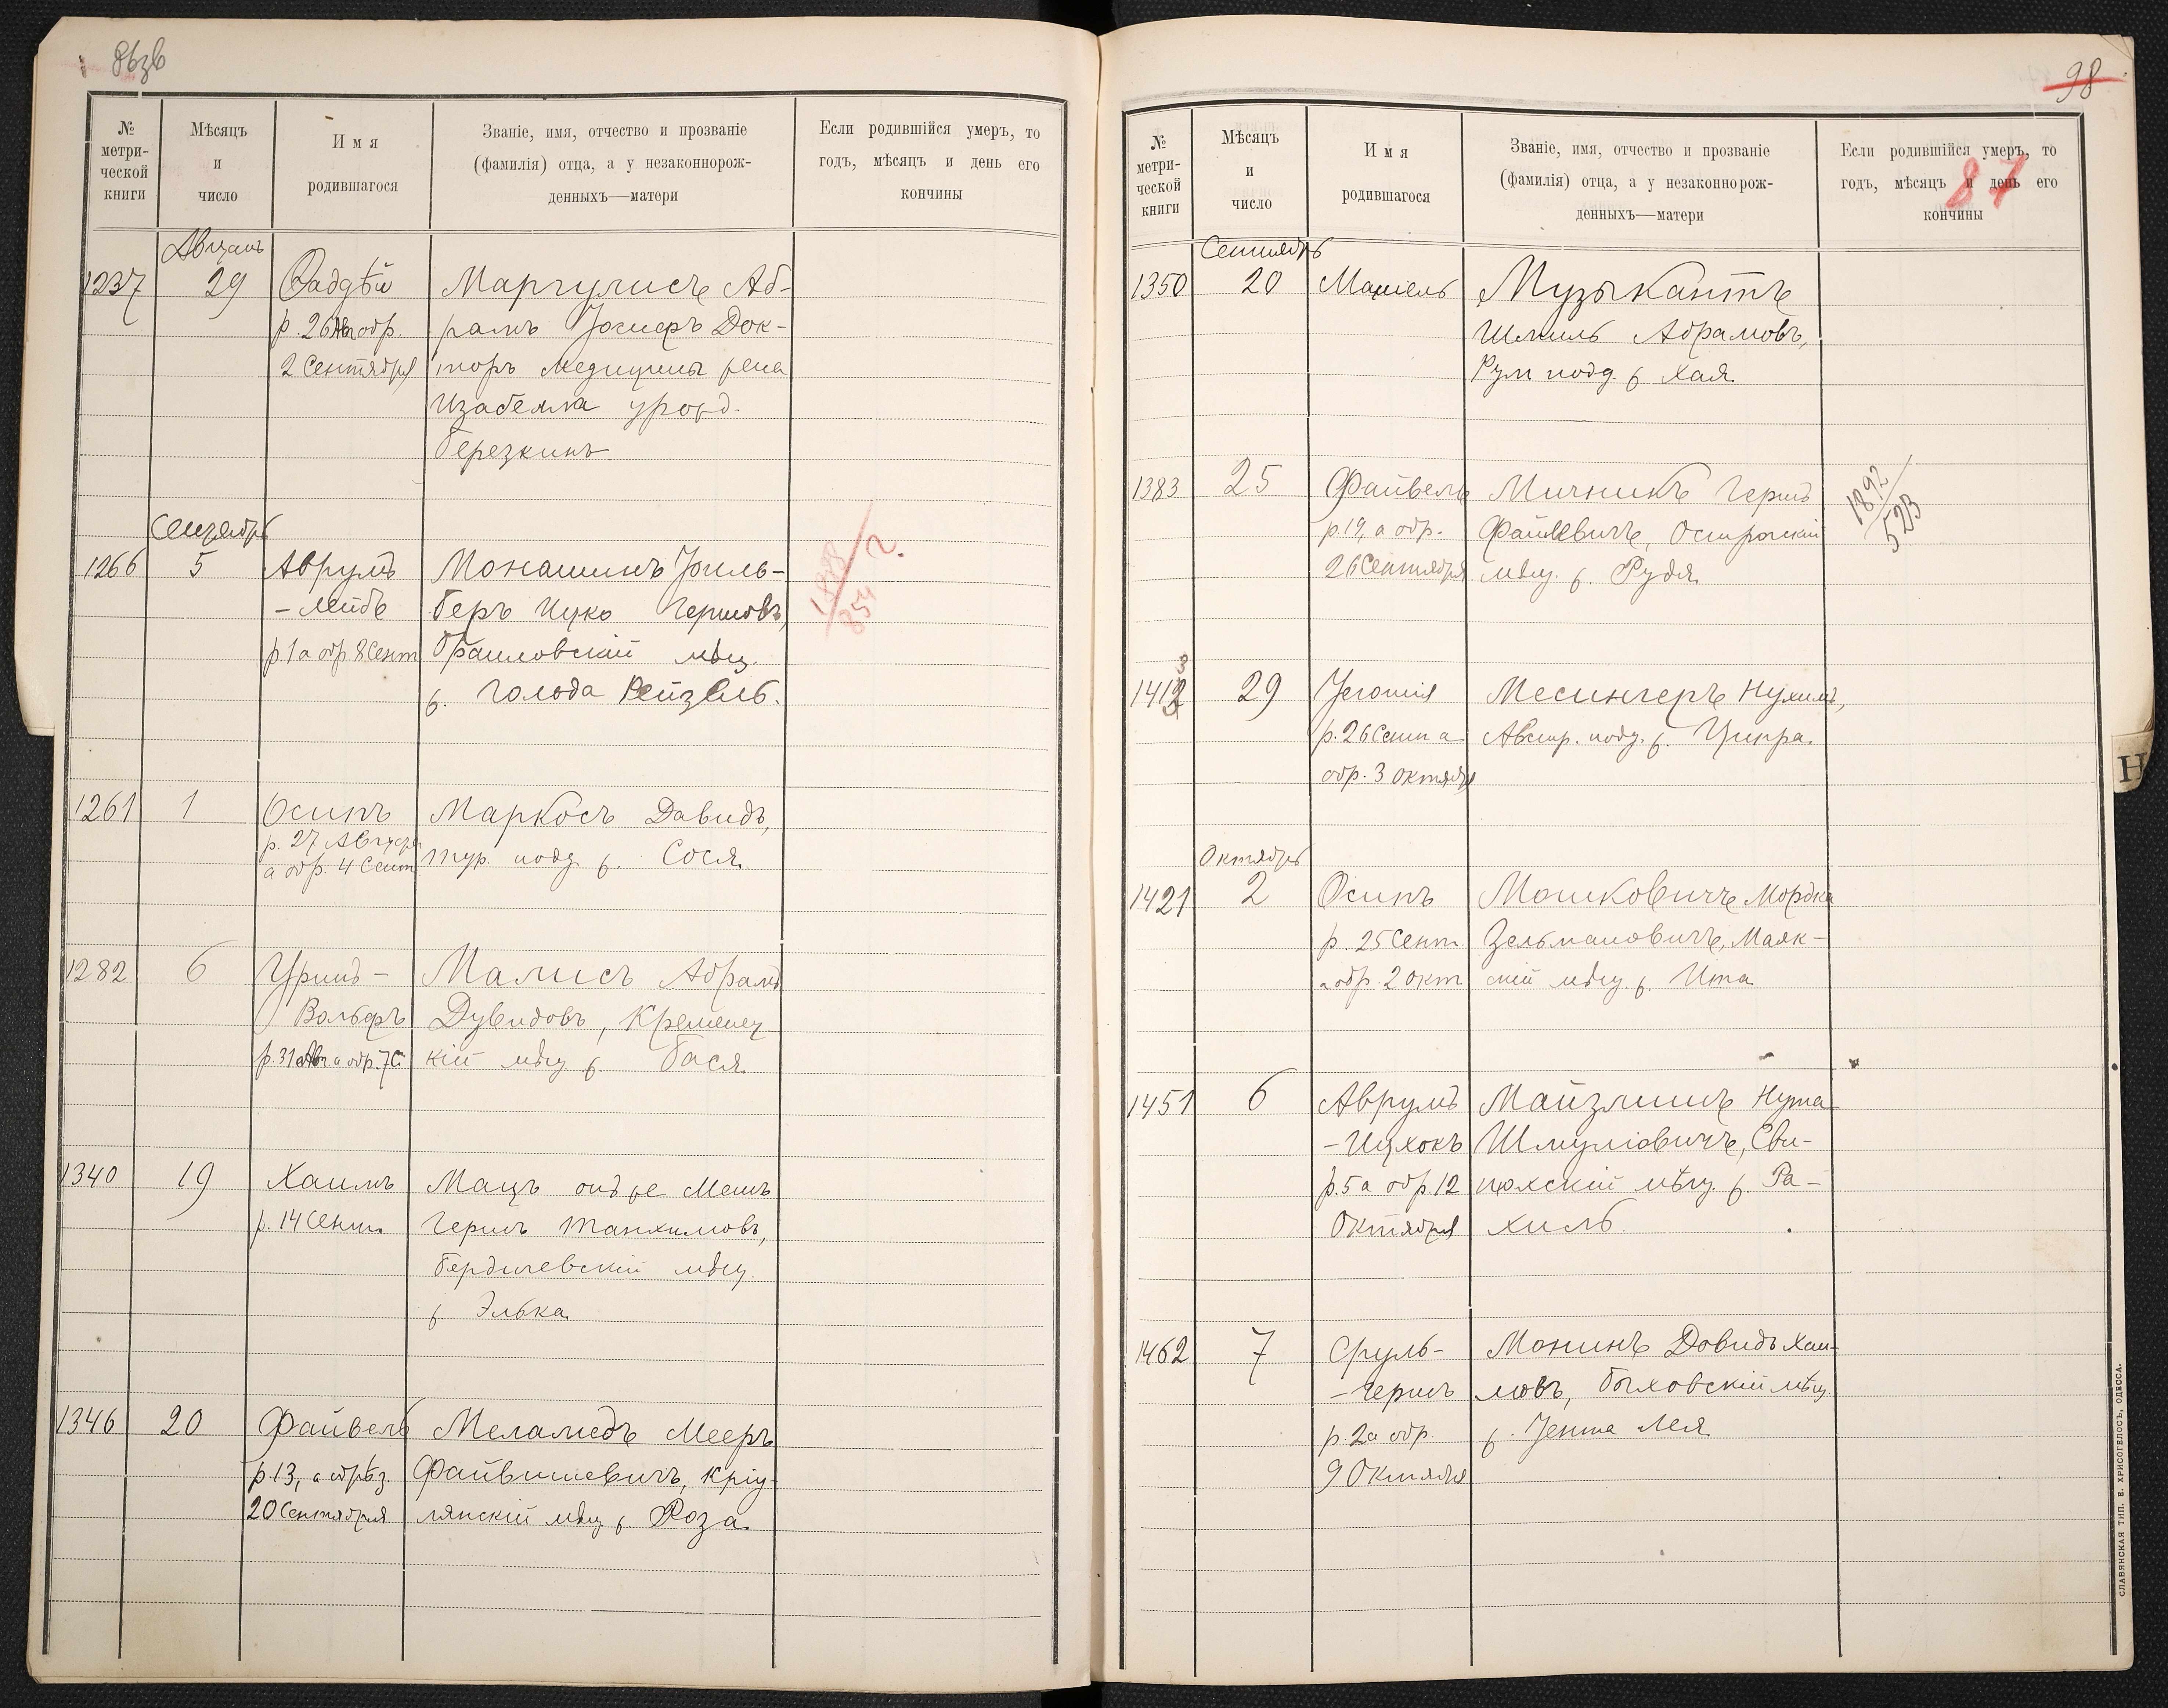 86 зв
№ метрической книги
Мѣсяцъ и число
Имя родившагося
Званіе, имя, отчество и прозваніе
(фамилія) отца, а у незаконнорож-
денныхъ—матери
Если родившійся умеръ, то
годъ, мѣсяцъ и день его
кончины
Августъ
1237 29 Фаддѣй Маргулисъ Аб-
р. 26 Авг обр. рамъ Іосифъ Док-
2 Сентября торъ медицины жена
Изабелла урожд.
Березкинъ
Сентябрь
1266 5 Аврумъ Монашинъ Фиш-
-Лейбъ беръ Ицко Гершовъ,
р. 1 а обр 8 Сент Браиловскій мѣщ.
ж. Голда Рейзель.
1261 1 Осипъ Маркосъ Давидъ,
р. 27 Августа
а обр. 4 Сент Тур. подд. ж. Сося
1282 6 Гришъ- Малисъ Абрамъ
Вольфъ Дувидовъ, Кременец
р. 31 Авг а обр. 7 С кій мѣщ ж. Бася
1340 19 Хаимъ Мацъ онъ же Мешъ
р. 14 Сент. Гершъ Танхимовъ,
Бердичевскій мѣщ.
ж Элька
1346 20 Файвель Меламедъ Мееръ
р. 13, а обрѣз. Файвишевичъ, Кріу-
20 Сентября лянскій мѣщ ж Роза
98
87
№ метрической книги
Мѣсяцъ и число
Имя родившагося
Званіе, имя, отчество и прозваніе
(фамилія) отца, а у незаконнорож-
денныхъ—матери
Если родившійся умеръ, то
годъ, мѣсяцъ и день его
кончины
Сентябрь
1350 20 Маніель Музыкантъ
Шмиль Абрамовъ,
Рум подд. ж Хая
1383 25 Файвель Мичникъ Гершъ 1892/523
р. 19, а обр. Файвевичъ, Острожскій
26 Сентября мѣщ. ж. Рудя
1413 29 Іеромія Месингеръ Нухимъ,
р. 26 Сент а Австр. подд. ж. Ципра.
обр. 3 Октября
Октябрь
1421 2 Осипъ Мошковичъ Мордко
р. 25 Сент Зельмановичъ, Маяк-
а обр. 2 окт скій мѣщ. ж. Ита
1451 6 Аврумъ Майзлишъ Нута
-Ицхокъ Шмуліовичъ, Сви-
р. 5 а обр. 12 нюхскій мѣщ. ж. Ра-
Октября хиль
1462 7 Сруль- Монинъ Довидъ Хаи-
-Гершъ мовъ, Быховскій мѣщ.
р. 2 а обр. ж. Іента Лея
9 Октября
Н
СЛАВЯНСКАЯ ТИП. Е. ХРИСОГЕЛОСЪ, ОДЕССА.